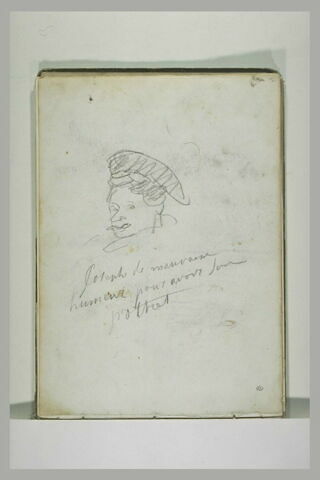 Joseph de mauvaise
humeur pour avoir son
portrait